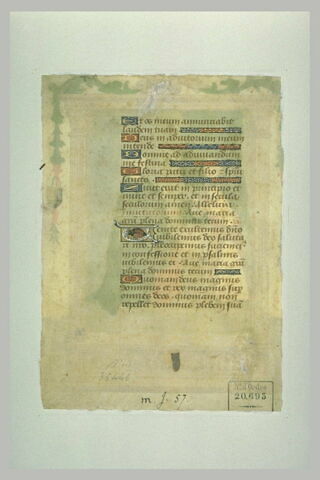 Et os meum annunciabit
laudem tuam
Deus in adiutorium meum
intende
Domine ad adiuvandum
me festina
Gloria patri et filio et spiri
sancto
Sicut erat in principio et
nunc et semper et in secula
seculorum amen Alleluia
Ave maria
gra plena dominus tecum
Venite exultemus dno
iubilemus deo saluta
ri nro preoccupemus faciem
in confessione et in psalmis
iubilemus ei Ave maria gra
plena dominus tecum
Quoniam deus magnus
dominus et rex magnus sup
omnes deos quoniam non
repellet dominus plebem sua
m. J. 57.
20.693